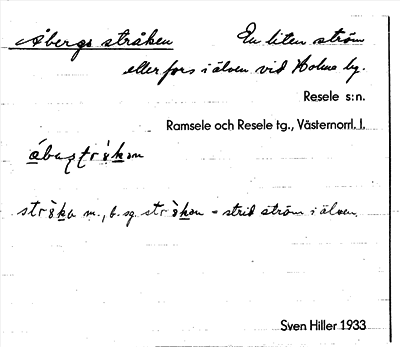 Åbergs stråken En liten ström
eller fors i älven vid Holme by.
Resele s:n.
Ramsele och Resele tg., Västernorrl. l.
stråka m., b. sg. stråkən = strid ström i älven.
Sven Hiller 1933